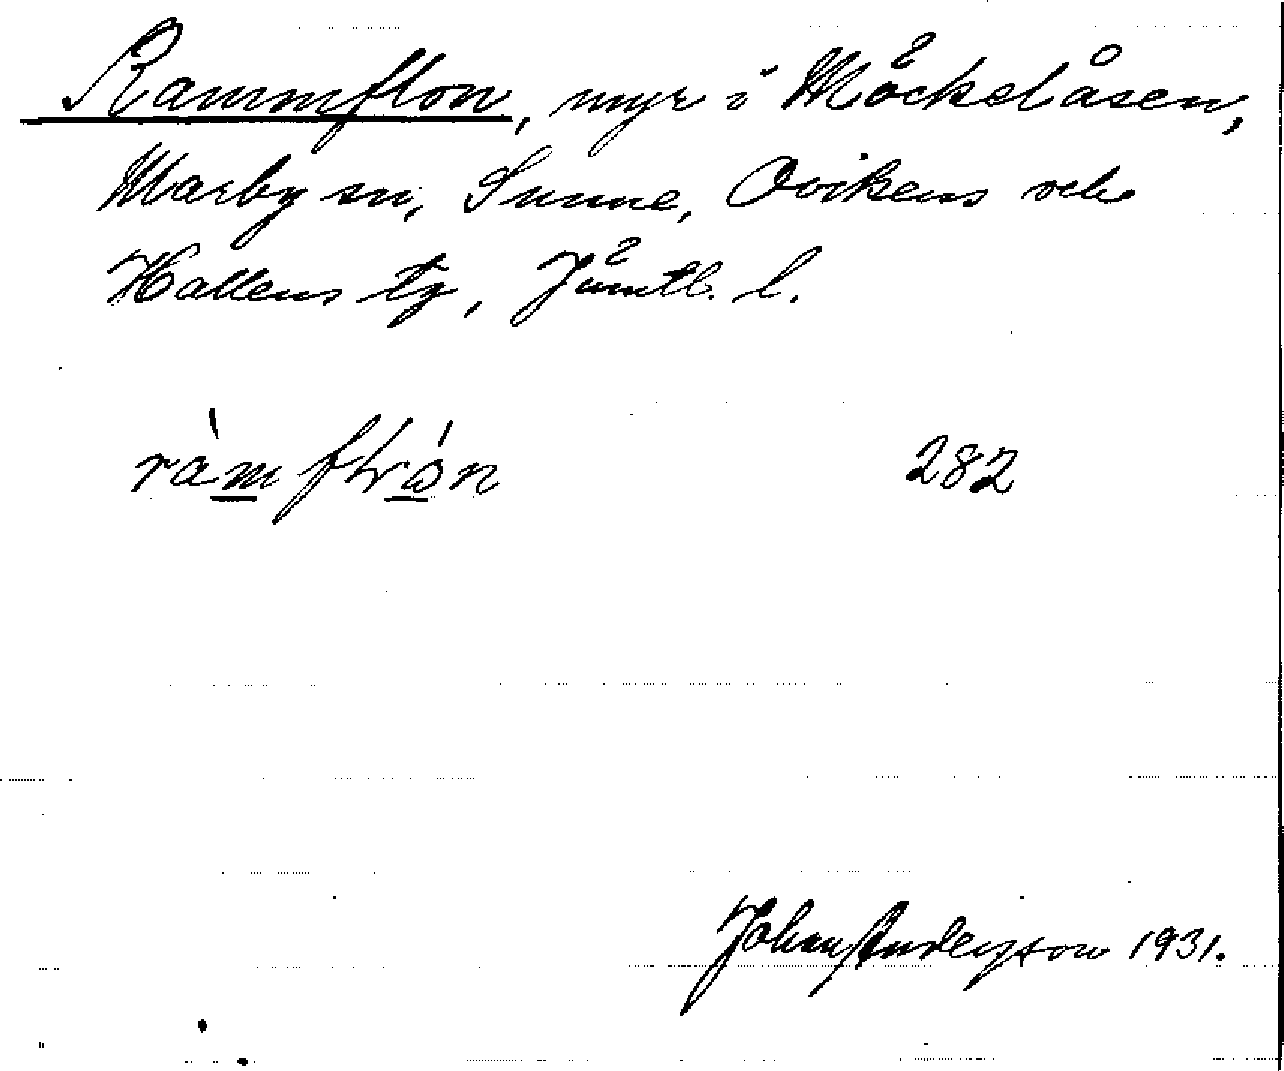 Rammflon, myr i Möckelåsen,
Marby sn, Sunne, Ovikens och
Hallens tg, Jämtl. l.
282
Johan Anderson 1931.